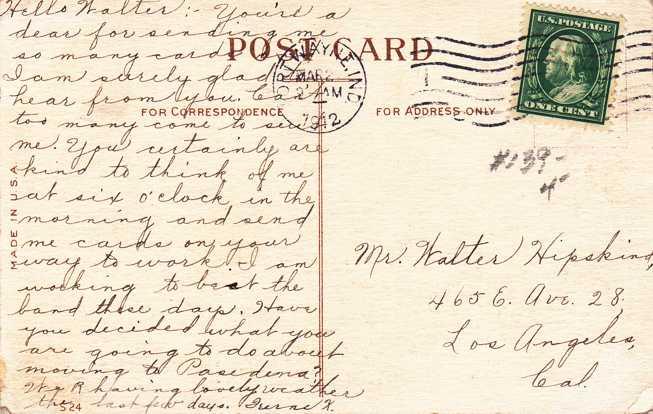 Hello Walter:- You're a
dear for sending me
so many cards
I am surely glad to
hear from you. Can't
too many come to suit
me. You certainly are
kind to think of me
at six o'clock in the
morning and send
me cards on your
way to work - I am
working to beat the
band these days. Have
you decided what you
are going to do about
moving to Pasedena?
We R having lovely weather
the last few days. Irene K.
POST CARD
FOR CORRESPONDENCE
FOR ADDRESS ONLY
MADE IN U.S.A.
524
FORT WAYNE, IND.
MAR 2
AM
1912
U.S. POSTAGE
ONE CENT
#139-
4-
Mr. Walter Hipskind,
465 E. Ave. 28,
Los Angeles,
Cal.